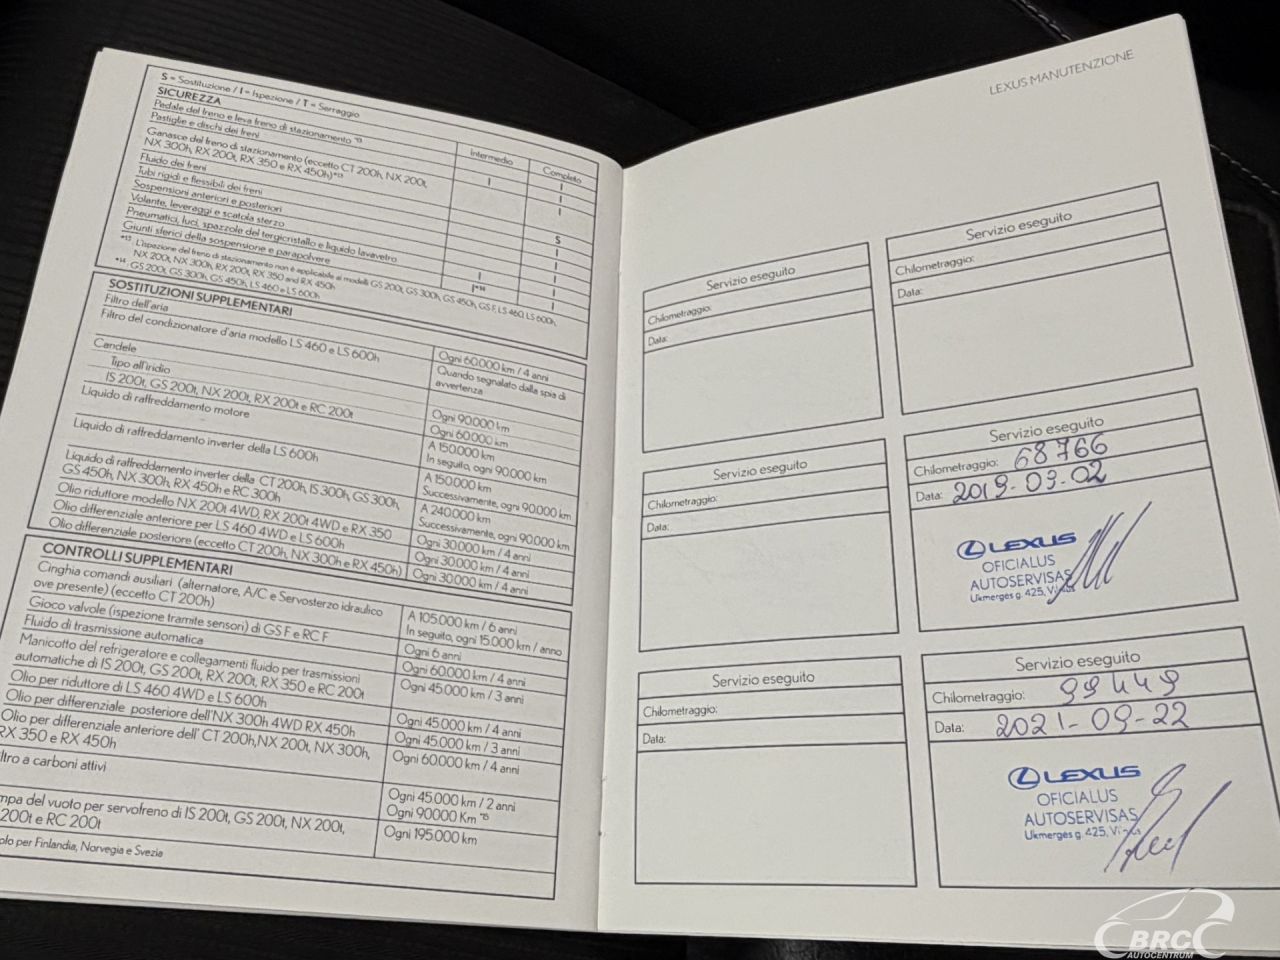 S = Sostituzione / I = Ispezione / T = Serraggio
SICUREZZA
Intermedio Completo
Pedale del freno e leva freno di stazionamento *13 I
Pastiglie e dischi dei freni I I
Ganasce del freno di stazionamento (eccetto CT 200h, NX 200t,
NX 300h, RX 200t, RX 350 e RX 450h)*13 I
Fluido dei freni S
Tubi rigidi e flessibili dei freni I
Sospensioni anteriori e posteriori I
Volante, leveraggi e scatola sterzo I
Pneumatici, luci, spazzole del tergicristallo e liquido lavavetro I I
Giunti sferici della sospensione e parapolvere I*14 I
*13 L'ispezione del freno di stazionamento non è applicabile ai modelli GS 200t, GS 300h, GS 450h, GS F, LS 460, LS 600h,
NX 200t, NX 300h, RX 200t, RX 350 and RX 450h
*14 GS 200t, GS 300h, GS 450h, LS 460 e LS 600h
SOSTITUZIONI SUPPLEMENTARI
Filtro dell'aria Ogni 60.000 km / 4 anni
Filtro del condizionatore d'aria modello LS 460 e LS 600h Quando segnalato dalla spia di
avvertenza
Candele
Tipo all'iridio Ogni 90.000 km
IS 200t, GS 200t, NX 200t, RX 200t e RC 200t Ogni 60.000 km
Liquido di raffreddamento motore A 150.000 km
In seguito, ogni 90.000 km
Liquido di raffreddamento inverter della LS 600h A 150.000 km
Successivamente, ogni 90.000 km
Liquido di raffreddamento inverter della CT 200h, IS 300h, GS 300h,
GS 450h, NX 300h, RX 450h e RC 300h A 240.000 km
Successivamente, ogni 90.000 km
Olio riduttore modello NX 200t 4WD, RX 200t 4WD e RX 350 Ogni 30.000 km / 4 anni
Olio differenziale anteriore per LS 460 4WD e LS 600h Ogni 30.000 km / 4 anni
Olio differenziale posteriore (eccetto CT 200h, NX 300h e RX 450h) Ogni 30.000 km / 4 anni
CONTROLLI SUPPLEMENTARI
Cinghia comandi ausiliari (alternatore, A/C e Servosterzo idraulico
ove presente) (eccetto CT 200h) A 105.000 km / 6 anni
In seguito, ogni 15.000 km / anno
Gioco valvole (ispezione tramite sensori) di GS F e RC F Ogni 6 anni
Fluido di trasmissione automatica Ogni 60.000 km / 4 anni
Manicotto del refrigeratore e collegamenti fluido per trasmissioni
automatiche di IS 200t, GS 200t, RX 200t, RX 350 e RC 200t Ogni 45.000 km / 3 anni
Olio per riduttore di LS 460 4WD e LS 600h Ogni 45.000 km / 4 anni
Olio per differenziale posteriore dell'NX 300h 4WD RX 450h Ogni 45.000 km / 3 anni
Olio per differenziale anteriore dell' CT 200h, NX 200t, NX 300h,
RX 350 e RX 450h Ogni 60.000 km / 4 anni
ltro a carboni attivi Ogni 45.000 km / 2 anni
Ogni 90000 Km *15
mpa del vuoto per servofreno di IS 200t, GS 200t, NX 200t,
200t e RC 200t Ogni 195.000 km
olo per Finlandia, Norvegia e Svezia
LEXUS MANUTENZIONE
Servizio eseguito
Chilometraggio:
Data:
Servizio eseguito
Chilometraggio:
Data:
Servizio eseguito
Chilometraggio:
Data:
Servizio eseguito
Chilometraggio: 68766
Data: 2019-09-02
LEXUS
OFICIALUS
AUTOSERVISAS
Ukmergės g. 425,
Servizio eseguito
Chilometraggio:
Data:
Servizio eseguito
Chilometraggio: 99449
Data: 2021-09-22
LEXUS
OFICIALUS
AUTOSERVISAS
Ukmergės g. 425,
BRC
AUTOCENTRUM